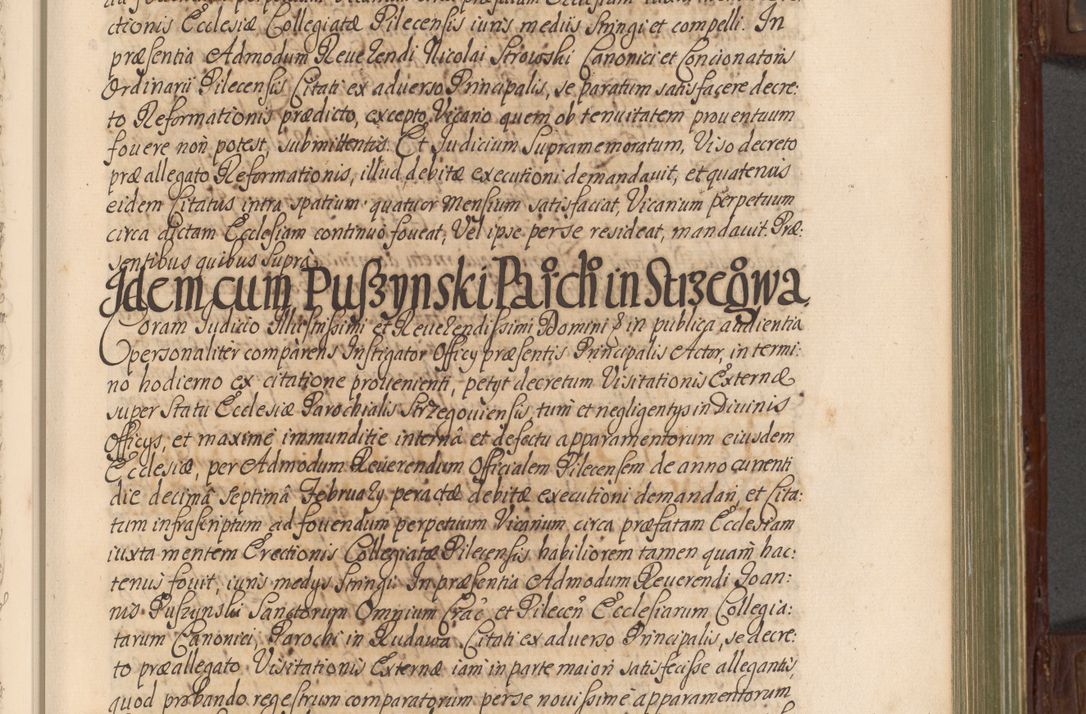 ctionis Ecclesiæ Collegiatæ Pilecensis iuris mediis stringi et compelli. In
præsentia Admodum Reverendi Nicolai Strowski Canonici et Concionatoris
Ordinarii Pilecensis Citati ex adverso Principalis, se paratum satisfacere decre:
to Reformationis prædicto, excepto Vicario quem ob tenuitatem proventuum
fovere non potest, submittentis. Et Judicium supramemoratum, Viso decreto
præallegato Reformationis, illud debitæ executioni demandavit, et quatenus
eidem Citatus intra spatium quatuor Mensium satisfaciat, Vicarium perpetuum
circa dictam Ecclesiam continuo foveat, Vel ipse per se resideat, mandavit. Præ:
sentibus quibus supra.
Idem cum Puszynski Paroch in Strzegowa
Coram Judicio Illustrissimi et Reverendissimi Domini & in publica audientia
personaliter comparens Instigator Officij præsentis Principalis Actor, in termi:
no hodierno ex citatione provenienti, petyt decretum Visitationis Externæ
super Statu Ecclesiæ Parochialis Strzegoviensis, tum et negligentijs in Divinis
Officijs, et maxime immunditie interna et defectu apparamentorum eiusdem
Ecclesiæ, per Admodum Reverendum Officialem Pilecensem de anno currenti
die decimâ septimâ February peractæ debitæ executioni demandari, et Cita:
tum infrascriptum ad fovendum perpetuum Vicarium circa præfatam Ecclesiam
iuxta mentem Erectionis Collegiatæ Pilecensis habiliorem tamen quam hac:
tenus fovit, iuris medijs stringi. In præsentia Admodum Reverendi Joan:
nis Puszynski Sanctorum Omnium Crac et Pilecen Ecclesiarum Collegia:
tarum Canonici, Parochi in Rudawa Citati ex adverso Principalis, se decre:
to præallegato Visitationis Externæ iam in parte maiori satisfecisse allegantis,
quod probando regestrum comparatorum per se novissime apparamentorum